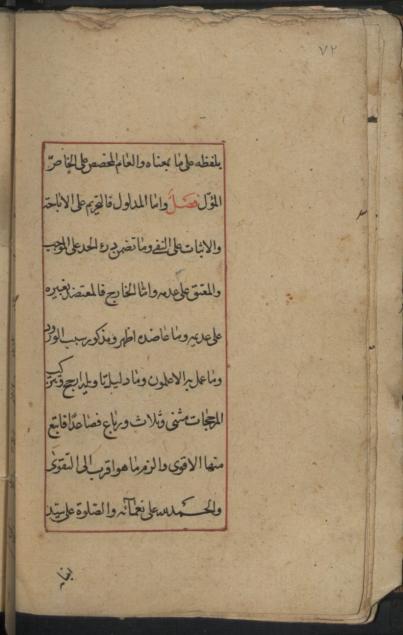 ٧٢
بلفظه على ما بمعناه والعام المخصص على الخاص
المؤل فصل واما المدلول فالتحريم على الاباحة
والاثبات على النفى وما تضمن درء الحد على الموجب
والمعتق على عدمه واما الخارج فالمعتضد بغيره
على عديمه وما عاضده اظهر ومذكور سبب الورود
وما عمل به الاعلون وما دليل تاويله ارجح وتتركب
المرجحات مثنى وثلاث ورباع فصاعدا فاتبع
منها الاقوى والزم ما هو اقرب الى التقوى
والحمد لله على نعمائه والصلوة على سيد